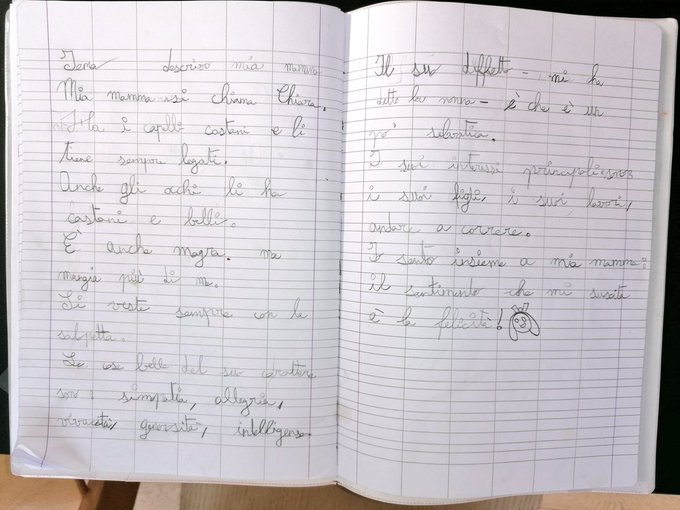 Tema descrivo mia mamma
Mia mamma si chiama Chiara.
Ha i capelli castani e li
tiene sempre legati.
Anche gli occhi li ha
castani e belli.
È anche magra. ma
mangia più di me.
Si veste sempre con la
salpetta.
Le cose belle del suo carattere
son: simpatia, allegria,
vivacità, generosità, intelligensa.
Il suo diffetto - mi ha
detto la nonna - è che è un
po' selvatica.
I suoi interessi principali sono
i suoi figli, i suoi lavori,
andare a correre.
Io sento insieme a mia mamma:
il sentimento che mi suscita
è la felicità!